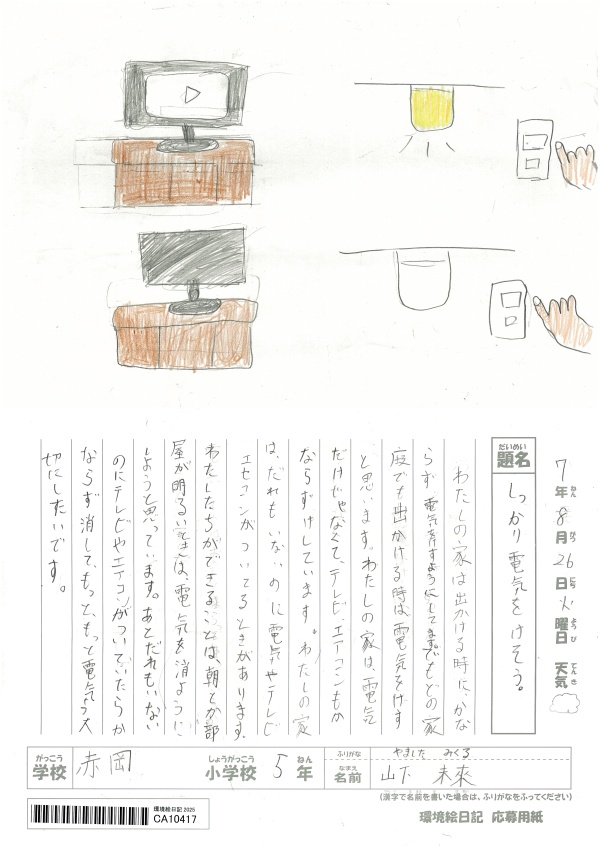 7年ねん8月がつ26日にち火曜日ようび 天気てんき
題名だいめい
しっかり電気をけそう。
わたしの家は出かける時に、かな
らず電気をけすようにしてます。でもどの家
庭でも出かける時は、電気をけす
と思います。わたしの家は、電気
だけじゃなくて、テレビ、エアコンもか
ならずけしています。わたしの家
は、だれもいないのに電気やテレビ
エアコンがついてるときがあります。
わたしたちができることは、朝とか部
屋が明るい時は、電気を消ように
しようと思っています。あとだれもいない
のにテレビやエアコンがついていたらか
ならず消して、もっと、もっと電気を大
切にしたいです。
学校がっこう 赤岡 小学校しょうがっこう 5年ねん
ふりがな やました みくる
名前なまえ 山下 未來
(漢字で名前を書いた場合は、ふりがなをふってください)
環境絵日記 2025
CA10417
環境絵日記 応募用紙